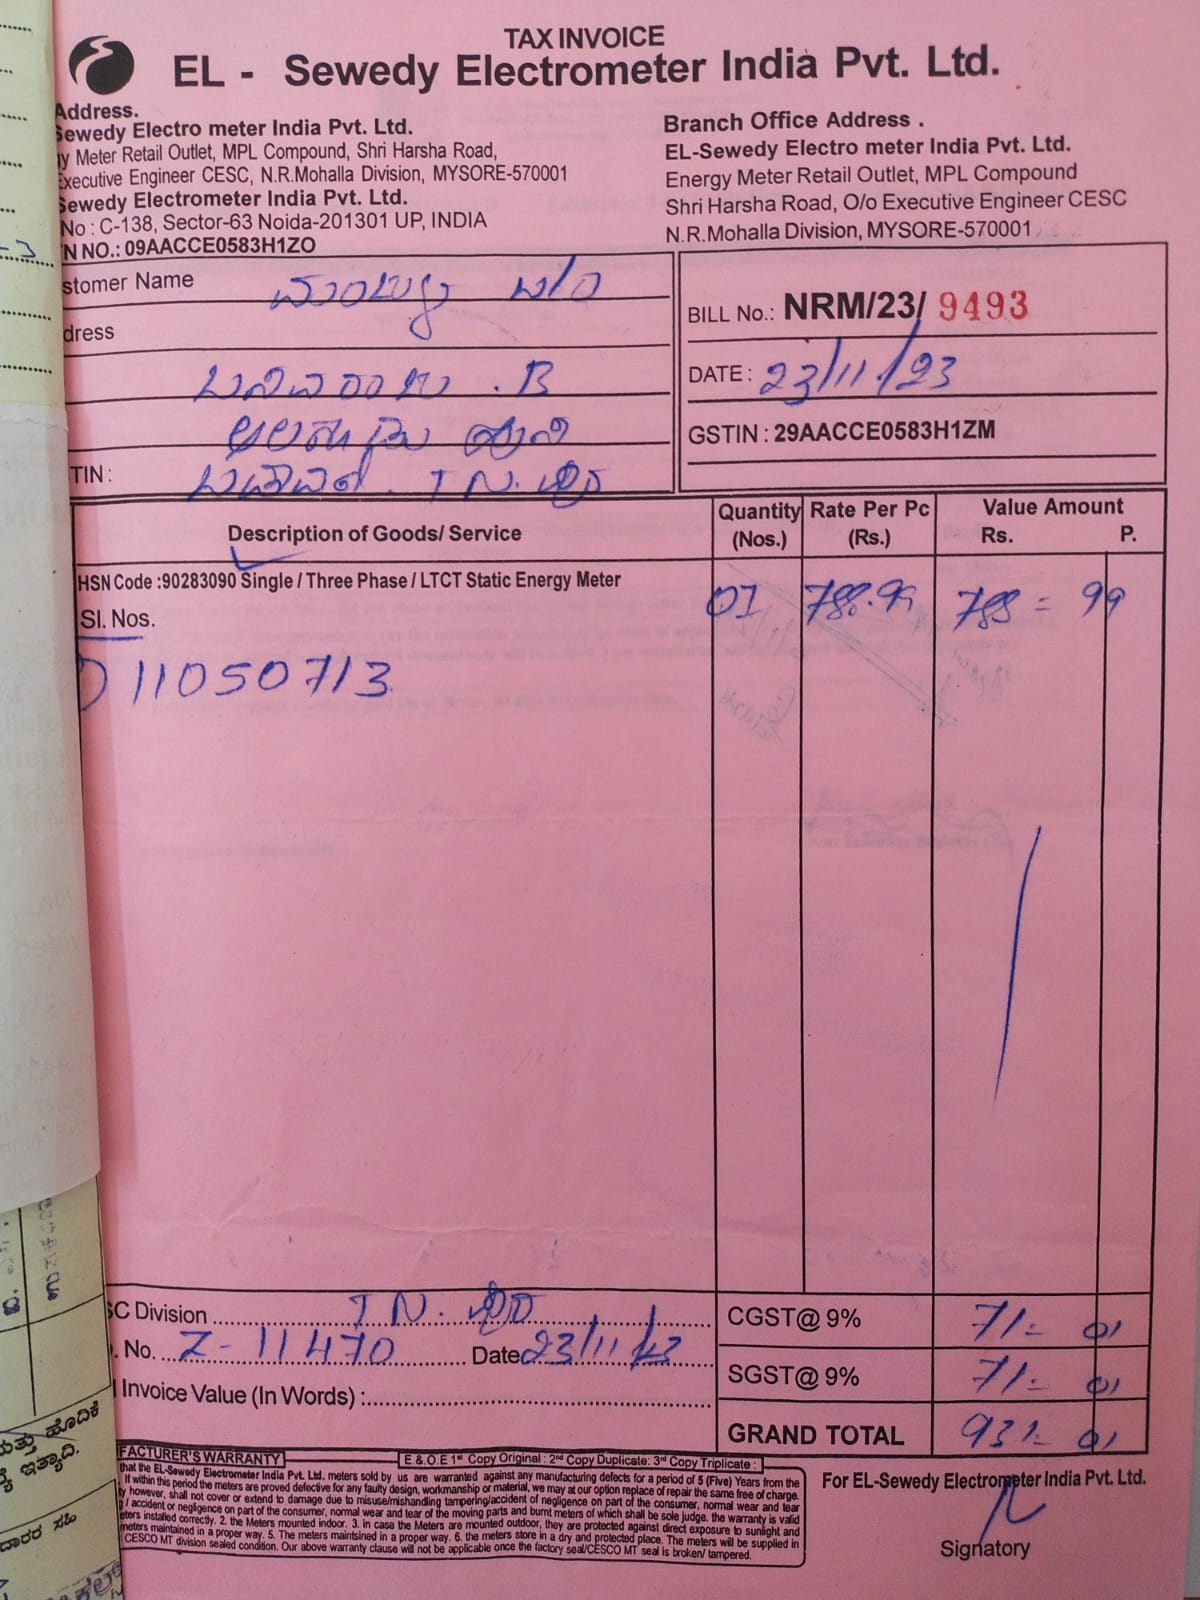 TAX INVOICE
EL - Sewedy Electrometer India Pvt. Ltd.
Address.
Sewedy Electro meter India Pvt. Ltd.
gy Meter Retail Outlet, MPL Compound, Shri Harsha Road,
Executive Engineer CESC, N.R.Mohalla Division, MYSORE-570001
Sewedy Electrometer India Pvt. Ltd.
No : C-138, Sector-63 Noida-201301 UP, INDIA
N NO.: 09AACCE0583H1ZO
Branch Office Address .
EL-Sewedy Electro meter India Pvt. Ltd.
Energy Meter Retail Outlet, MPL Compound
Shri Harsha Road, O/o Executive Engineer CESC
N.R.Mohalla Division, MYSORE-570001
stomer Name
dress
TIN :
BILL No.: NRM/23/ 9493
DATE : 23/11/23
GSTIN : 29AACCE0583H1ZM
Description of Goods/ Service
Quantity (Nos.)
Rate Per Pc (Rs.)
Value Amount
Rs. P.
HSN Code :90283090 Single / Three Phase / LTCT Static Energy Meter
01 788.99 788 = 99
Sl. Nos.
) 11050713
SC Division T N.
. No. Z-11470 Date 23/11/23
Invoice Value (In Words) :
CGST@ 9% 71 = 01
SGST@ 9% 71 = 01
GRAND TOTAL 931 = 01
FACTURER'S WARRANTY
E & O.E 1st Copy Original : 2nd Copy Duplicate: 3rd Copy Triplicate :
that the EL-Sewedy Electrometer India Pvt. Ltd. meters sold by us are warranted against any manufacturing defects for a period of 5 (Five) Years from the
If within this period the meters are proved defective for any faulty design, workmanship or material, we may at our option replace of repair the same free of charge.
however, shall not cover or extend to damage due to misuse/mishandling tampering/accident of negligence on part of the consumer, normal wear and tear
/ accident or negligence on part of the consumer, normal wear and tear of the moving parts and burnt meters of which shall be sole judge. the warranty is valid
eters installed correctly. 2. the Meters mounted indoor. 3. in case the Meters are mounted outdoor, they are protected against direct exposure to sunlight and
meters maintained in a proper way. 5. The meters maintsined in a proper way. 6. the meters store in a dry and protected place. The meters will be supplied in
CESCO MT division sealed condition. Our above warranty clause will not be applicable once the factory seal/CESCO MT seal is broken/ tampered.
For EL-Sewedy Electrometer India Pvt. Ltd.
Signatory
ಮತ್ತು ಹೊದಿಕೆ
ಇತ್ಯಾದಿ.
ದಾರರ ಸಹಿ